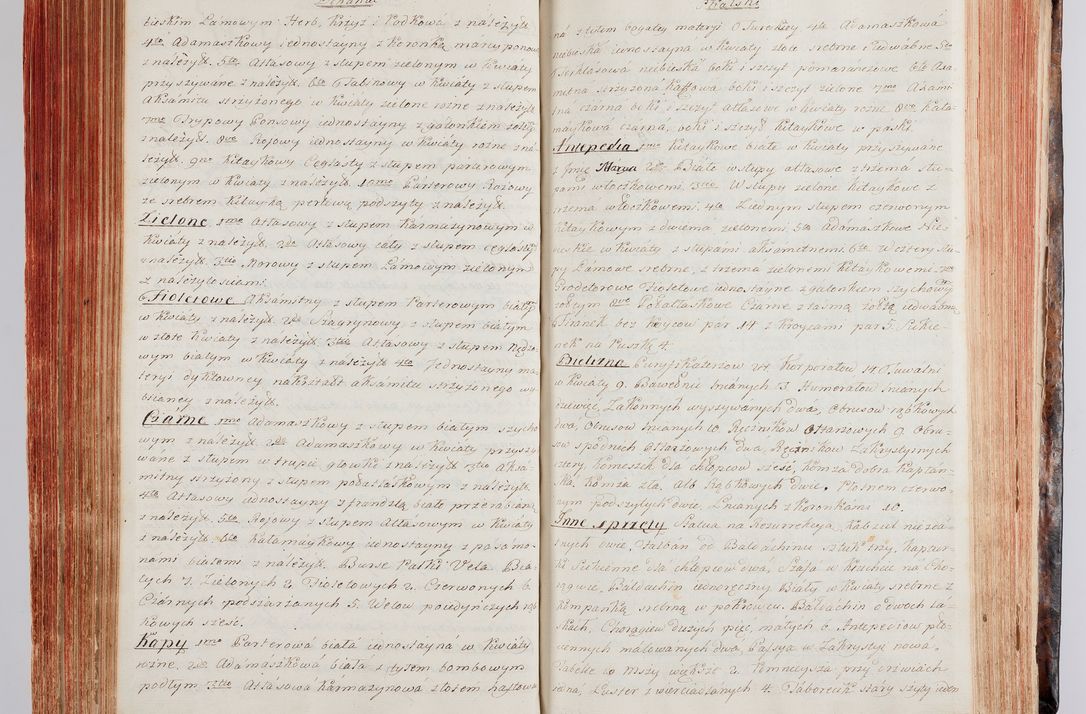 Dekanat
bieskim Lamowym: Herb, Krzyż i Podkowa z należyt.
4to Adamaszkowy iednostayny z Koronką marcypanową
z należyt. 5to Atłasowy z słupem zielonym w Kwiaty
przyszywane z należyt. 6to Tabinowy w Kwiaty z słupem
Aksamitu strzyżonego w Kwiaty zielone rożne z należyt.
7mo Trypowy Ponsowy iednostayny z galonkiem żołtym
z należyt. 8vo Rojowy iednostayny w Kwiaty rożne z na-
leżyt. 9no Kitaykowy Ceglasty z słupem parterowym
zielonym w Kwiaty z należyt. 10mo Parterowy Rożowy
ze srebrem Kitayką perłową podszyty z należyt.
Zielone 1mo Atłasowy z słupem Karmazynowym w
Kwiaty z należyt. 2do Atłasowy cały z słupem ceglastym
z należyt. 3tio Morowy z słupem Lamowym zielonym
z należytosciami.
Fioletowe Aksamitny z słupem Parterowym białym
w Kwiaty z należyt. 2do Szagrynowy z słupem białym
w złote Kwiaty z należyt. 3tio Atłasowy z słupem
wym białym w Kwiaty z należyt. 4to Jednostayny ma-
teryi dykłowney nakształt aksamitu strzyżonego wy-
bijaney z należyt.
Czárne 1mo Adamaszkowy z słupem białym szycho
wym z należyt. 2do Adamaszkowy w Kwiaty przyszy-
wane z słupem w trupie głowki z należyt. 3tio Aksa-
mitny strzyżony z słupem podatłaskowym z należyt.
4to Atłasowy iednostayny z frandzlą biało przerabianą
z należyt. 5to Rojowy z słupem Atłasowym w Kwiaty
z należyt. 6to Kalamaykowy iednostayny z pasamo-
nami białemi z należyt. Burse Palki Vela. Bia-
łych 7. Zielonych 2. Fioletowych 2. Czerwonych 6.
Czárnych podszarżanych 5. Welow poiedyńczych rąb
kowych sześć.
Kapy 1mo Parterowa biała iednostayna w Kwiaty
rożne. 2do Adamaszkowa biała z tyłem bombowym
podłym 3tio Atłasowa karmazynowa złotem haftowa-
Pilski
na z tyłem bogatey materyi O Tureckiey 4ta Adamaszkowa
niebieska iednostayna w Kwiaty złote srebrne i iedwabne 5ta
niebieska boki i szczyt pomarańczowe 6ta Axa-
mitna strzyżona Kaffowa boki i szczyt zielone 7ma Axami
tna czarna boki i szczyt atłasowe w Kwiaty rożne. 8va Kala-
maykowa czarna, boki i szczyt Kitaykowe w paski.
Antepedia 1mo Kitaykowe białe w Kwiaty przyszywane
z Jmię Marya 2do Białe w słupy atłasowe z trzema słu-
pami włoczkowemi 3tio W słupy zielone kitaykowe z
trzema włoczkowemi. 4to Z iednym słupem czerwonym
kitaykowym z dwiema zielonemi 5to Adamaszkowe Nie-
bieskie w Kwiaty z słupami aksamitnemi 6to W cztery słu-
py Lamowe srebrne, z trzema zielonemi kitaykowemi 7mo
Grodetorowe Fioletowe iednostayne z galonkiem szychowym
żołtym 8vo Podatłaskowe Czarne z taśmą żołtą iedwabną
Firanek bez krojcow par 14 z krojcami par 5. Sukie-
nek na Puszkę 4.
Bielizna Puryfikaterzow 24. Korporałow 14. Tuwalni
w Kwiaty 9. Bawełnic lnianych 3 Humerałow lnianych
dziewięć, Zakonnych wyszywánych dwá, Obrusow rąbkowych
dwa, Obrusow lnianych 10. Ręcznikow Ołtarzowych 9. Obru-
sow spodnich Ołtarzowych dwá, Ręcznikow Zakrystyinych
cztery, Komeszek dla chłopcow sześć, komża dobra Kapłan-
ska, komża zła. Alb Rąbkowych dwie. Płotnem czerwo-
nym podszytych dwie. Lnianych z Koronkami 10.
Inne sprzęty Statua na Rezurrekcyą, Kap zul niezda-
tnych dwie, Falban od Baldachinu sztuk trzy, Kaptur-
ki Sukienne dla chłopcow dwa, Szafa w kruchcie na Cho-
rągwie, Baldachin iednoręczny Biały w Kwiaty srebrne z
kompanką srebrną w pokrowcu. Baldachin o dwoch la-
skach, Chorągiew dużych pięc, małych 6. Antepediow pło-
ciennych malowanych dwa, Passya w Zakrystyi nowa,
Tabelle do mszy większe 2. Kamnicyza przy drzwiach
iedna, Luster z zwierciadlanych 4. Taborecik stáry szyty ieden